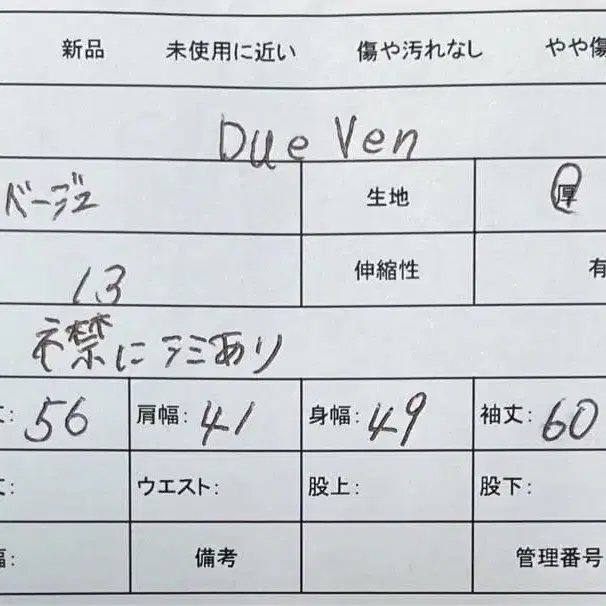 新品 未使用に近い 傷や汚れなし やや傷
Due Ven
ベージュ 生地 厚
13 伸縮性 有
襟にシミあり
丈: 56 肩幅: 41 身幅: 49 袖丈: 60
丈: ウエスト: 股上: 股下:
幅: 備考 管理番号